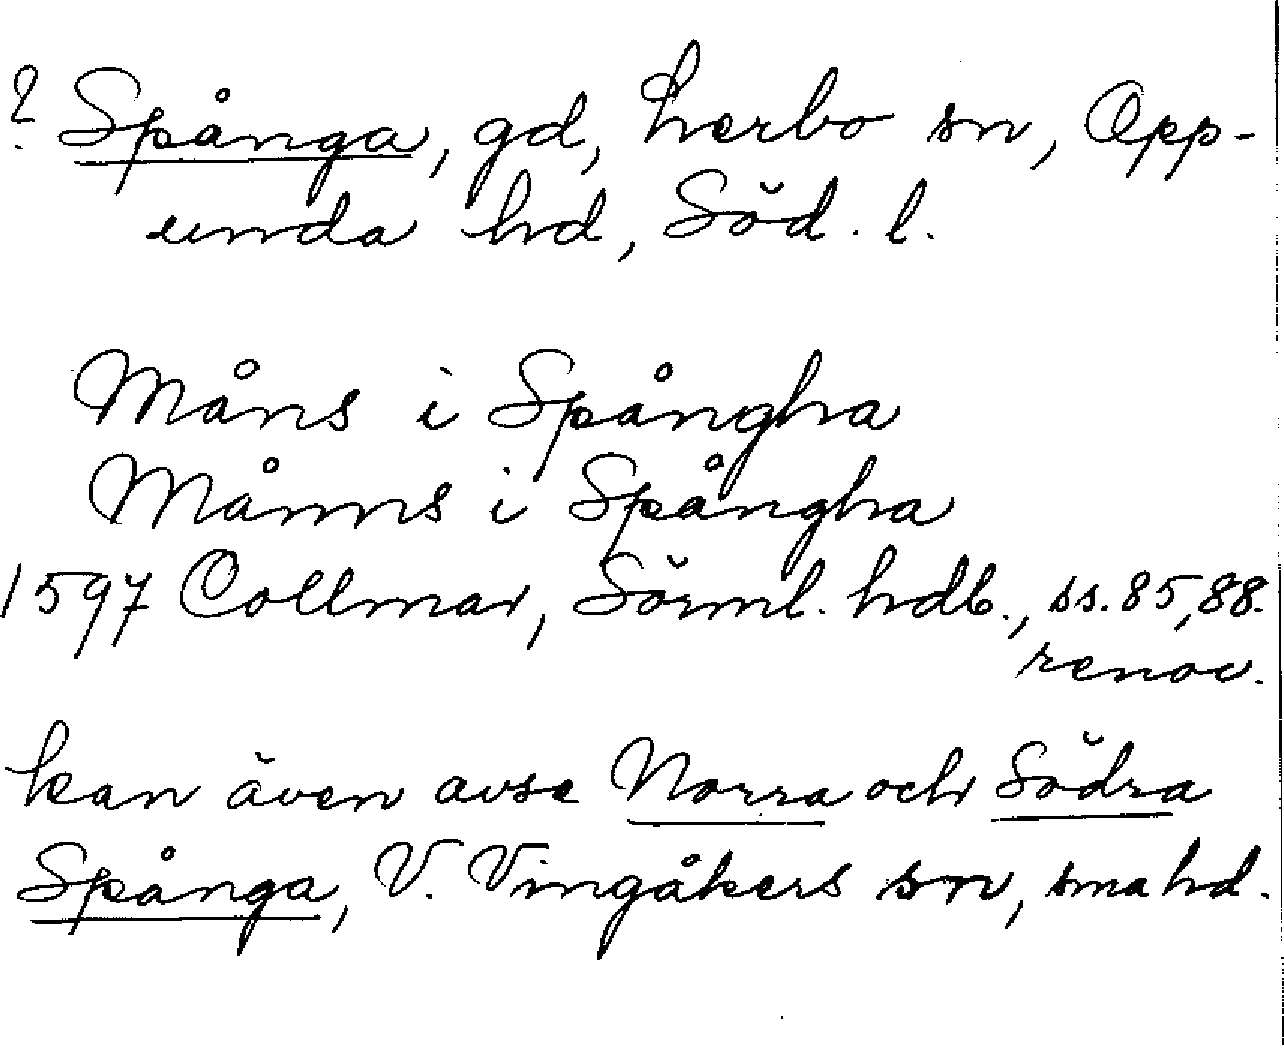 ? Spånga, gd, Lerbo sn, Opp-
unda hd, Söd. l.
Måns i Spångha
Månns i Spångha
1597 Collmar, Sörml. hdb., ss. 85, 88.
renov.
kan även avse Norra och Södra
Spånga, V. Vingåkers sn, sma hd.